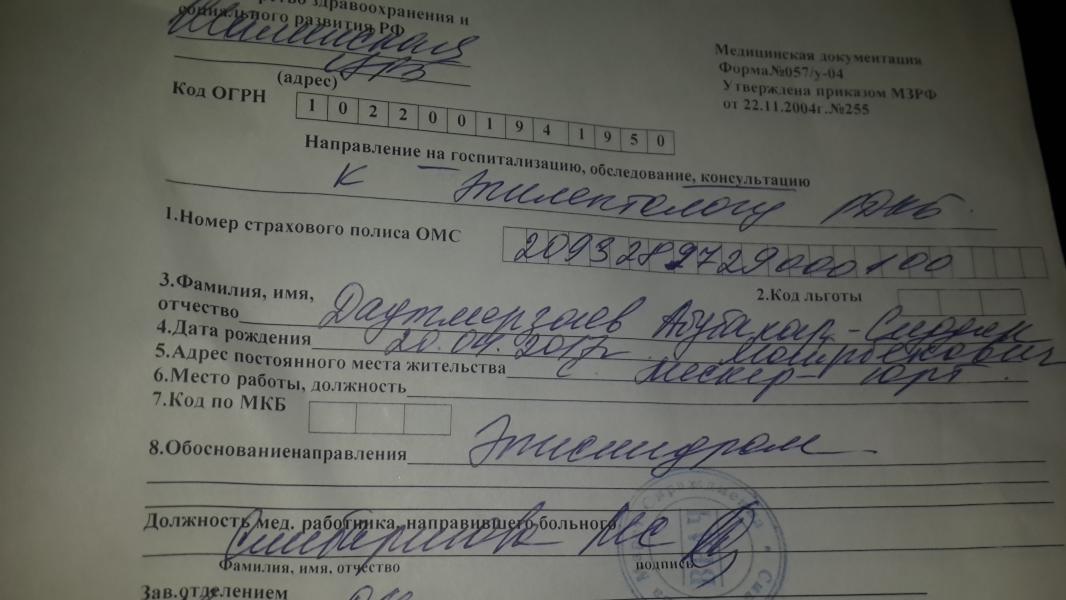 здравоохранения и
социального развития РФ
Шалинская
ЦРБ
(адрес)
Медицинская документация
Форма№057/у-04
Утверждена приказом МЗРФ
от 22.11.2004г.№255
Код ОГРН 1022001941950
Направление на госпитализацию, обследование, консультацию
К эпилептологу РДКБ.
1.Номер страхового полиса ОМС 2093289729000100
2.Код льготы
3.Фамилия, имя, отчество Даутмерзаев Абубакар-Сиддик
4.Дата рождения 20.04.2017г.
5.Адрес постоянного места жительства Мескер-юрт.
6.Место работы, должность
7.Код по МКБ
8.Обоснованиенаправления Эписиндром
Должность мед. работника, направившего больного
МС
Фамилия, имя, отчество подпись
Зав.отделением